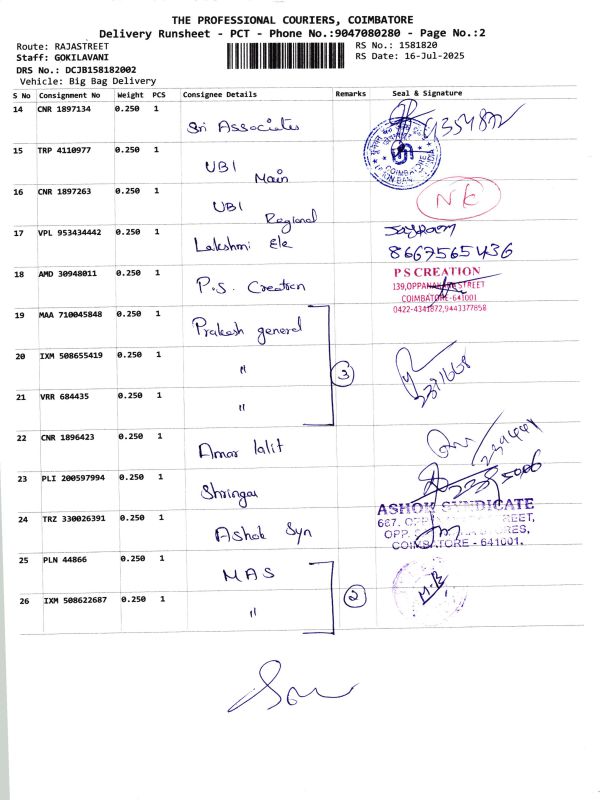 THE PROFESSIONAL COURIERS, COIMBATORE
Delivery Runsheet - PCT - Phone No.:9047080280 - Page No.:2
Route: RAJASTREET
RS No.: 1581820
Staff: GOKILAVANI
RS Date: 16-Jul-2025
DRS No.: DCJB158182002
Vehicle: Big Bag Delivery
S No Consignment No Weight PCS Consignee Details Remarks Seal & Signature
14 CNR 1897134 0.250 1 Sri Associates
15 TRP 4110977 0.250 1 UBI Main
COIMBATORE
16 CNR 1897263 0.250 1 UBI Regional NK
17 VPL 953434442 0.250 1 Lakshmi Ele
8667565436
18 AMD 30948011 0.250 1 P.S. Creation
P S CREATION
139,OPPANAKARA STREET
COIMBATORE-641001
0422-4341872,9443377858
19 MAA 710045848 0.250 1 Prakash general
20 IXM 508655419 0.250 1 " 3
21 VRR 684435 0.250 1 "
22 CNR 1896423 0.250 1 Amar lalit
23 PLI 200597994 0.250 1 Shringar
24 TRZ 330026391 0.250 1 Ashok Syn
ASHOK SYNDICATE
667, STREET,
OPP.
COIMBATORE - 641001.
25 PLN 44866 0.250 1 MAS
26 IXM 508622687 0.250 1 " 2